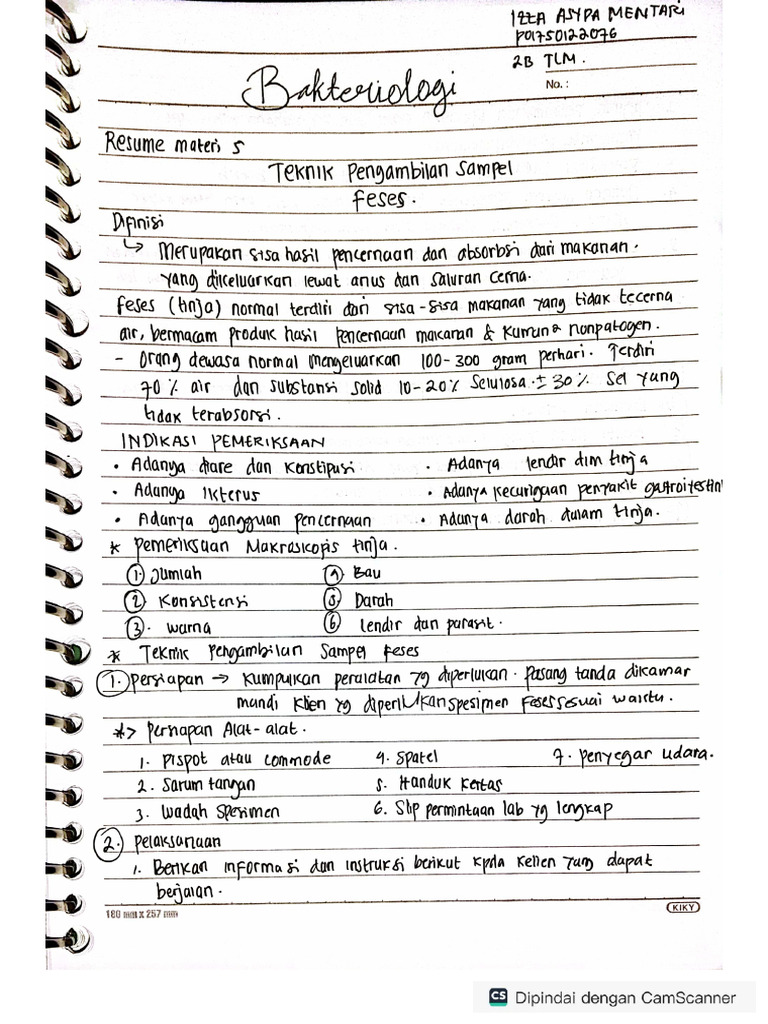 IZZA ASYPA MENTARI
P01750122076
2B TLM.
No. :
Bakteriologi
Resume materi 5
Teknik Pengambilan Sampel
Feses.
Difinisi
↳ Merupakan sisa hasil pencernaan dan absorbsi dari makanan.
yang dikeluarkan lewat anus dan saluran cerna.
Feses (tinja) normal terdiri dari sisa-sisa makanan yang tidak tecerna
air, bermacam produk hasil pencernaan makanan & kuman nonpatogen.
- Orang dewasa normal mengeluarkan 100-300 gram perhari. Terdiri
70% air dan substansi solid 10-20% Selulosa. ± 30% Sel yang
tidak terabsorsi.
INDIKASI PEMERIKSAAN
• Adanya diare dan konstipusi • Adanya lendir dlm tinja
• Adanya Ikterus • Adanya kecurigaan penyakit gastroitestin
• Adanya gangguan pencernaan • Adanya darah dalam tinja.
* Pemeriksaan Makraskopis tinja.
1. Jumlah 4) Bau
2 Konsistensi 5. Darah
3. warna 6 lendir dan parasit.
* Teknik Pengambilan Sampel Feses
1. Persiapan → Kumpulkan peralatan yg diperlukan. Pasang tanda dikamar
mandi Klien yg diperlukan spesimen Feses sesuai waktu.
*> Persiapan Alat-alat.
1. Pispot atau commode 4. Spatel 7. Penyegar udara.
2. Sarum tangan 5. Handuk Kertas
3. Wadah Spesimen 6. Slip permintaan lab yg lengkap
2. Pelaksanaan
1. Berikan informasi dan instruksi berikut kpda Kelien yang dapat
berjalan.
180 mm X 257 mm
KIKY
CS Dipindai dengan CamScanner